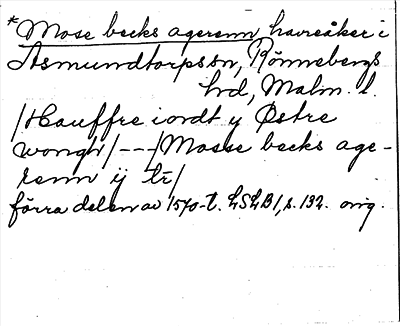 *Mose becks agerenn, havreåker i
Asmundtorps sn, Rönnebergs
hd, Malm. l.
/Hauffre iordt y Østre
wongh/---/Mosse becks age-
renn ij tr/
förra delen av 1570-t. LSLB1, s. 132. orig.